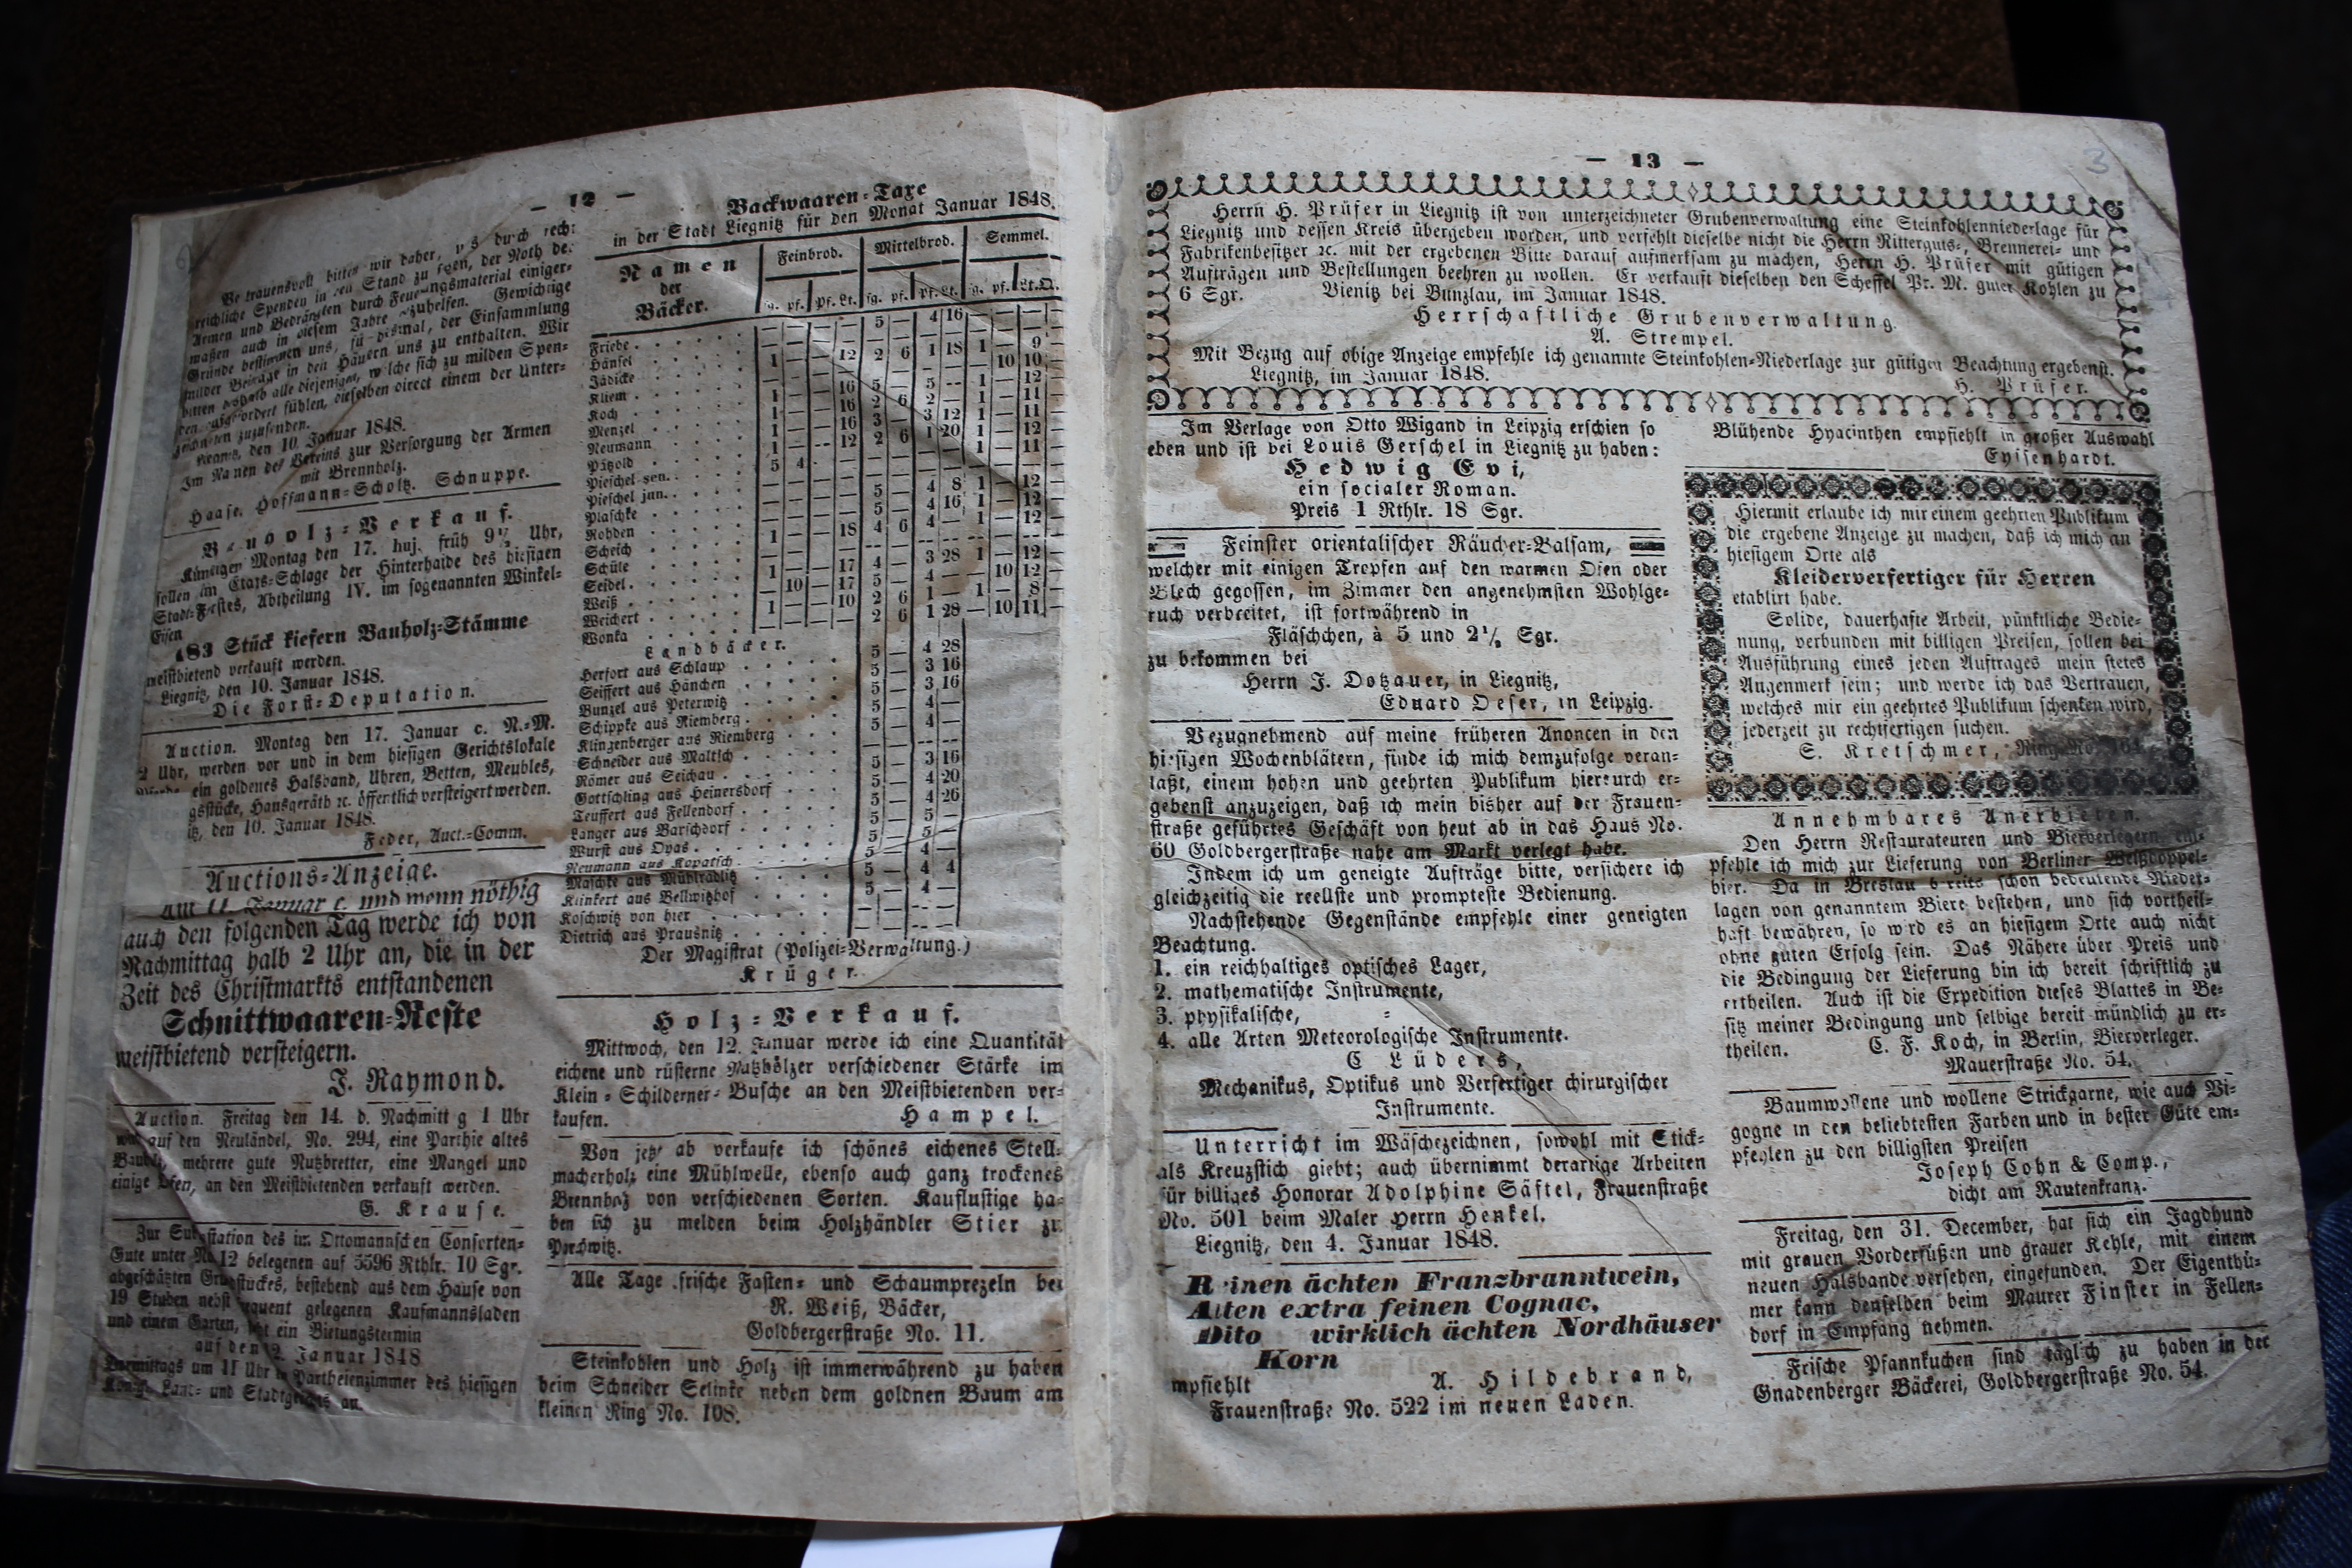 — 12 —
Vertrauensvoll bitten wir daher, uns durch
reichliche Spenden in den Stand zu setzen, der Noth der
Armen und Bedrängten durch Feuerungsmaterial einiger-
maßen auch in diesem Jahre abzuhelfen. Gewichtige
Gründe bestimmen uns, für diesmal, der Einsammlung
milder Beiträge in den Häusern uns zu enthalten. Wir
bitten deshalb alle diejenigen, welche sich zu milden Spen-
den aufgefordert fühlen, dieselben direct einem der Unter-
zeichneten zuzusenden.
Liegnitz, den 10. Januar 1848.
Im Namen des Vereins zur Versorgung der Armen
mit Brennholz.
Haase. Hoffmann-Scholtz. Schnuppe.
Bauholz-Verkauf.
Künftigen Montag den 17. huj. früh 9½ Uhr,
sollen im Etats-Schlage der Hinterhaide des hiesigen
Stadt-Forstes, Abtheilung IV. im sogenannten Winkel-
Eisen
183 Stück kiefern Bauholz-Stämme
meistbietend verkauft werden.
Liegnitz, den 10. Januar 1848.
Die Forst-Deputation.
Auction. Montag den 17. Januar c. N.-M.
2 Uhr, werden vor und in dem hiesigen Gerichtslokale
ein goldenes Halsband, Uhren, Betten, Meubles,
Hausgeräth ꝛc. öffentlich versteigert werden.
den 10. Januar 1848.
Feder, Auct.-Comm.
Auctions-Anzeige.
am 11. Januar c. und wenn nöthig
auch den folgenden Tag werde ich von
Nachmittag halb 2 Uhr an, die in der
Zeit des Christmarkts entstandenen
Schnittwaaren-Reste
meistbietend versteigern.
J. Raymond.
Auction. Freitag den 14. d. Nachmittag 1 Uhr
auf den Neuländel, No. 294, eine Parthie altes
Bauholz, mehrere gute Nutzbretter, eine Mangel und
einige Öfen, an den Meistbietenden verkauft werden.
G. Krause.
Zur Subhastation des im Ottomannschen Consorten-
Gute unter No 12 belegenen auf 5596 Rthlr. 10 Sgr.
abgeschätzten Grundstückes, bestehend aus dem Hause von
19 Stuben nebst frequent gelegenen Kaufmannsladen
und einem Garten, ist ein Bietungstermin
auf den Januar 1848
Vormittags um 11 Uhr im Partheienzimmer des hiesigen
Königl. Land- und Stadtgerichts an.
Backwaaren-Taxe
in der Stadt Liegnitz für den Monat Januar 1848.
Namen der Bäcker. Feinbrod. Mittelbrod. Semmel.
sg. pf. Pf. Lt. sg. pf. Pf. Lt. sg. pf. Lt. Q.
Friebe
Hänsel
Jädicke
Kliem
Koch
Menzel
Neumann
Pätzold
Pieschel sen.
Pieschel jun.
Plaschke
Rohden
Scheich
Schüle
Seidel
Weiß
Weichert
Wonka
Landbäcker.
Herfort aus Schlaup 5 — 4 28
Seiffert aus Hänchen 5 — 3 16
Bunzel aus Peterwitz 5 — 3 16
Schippke aus Riemberg 5 — 4 —
Klinzenberger aus Riemberg 5 — 4 —
Schneider aus Maltsch — — — —
Römer aus Seichau 5 — 3 16
Gottschling aus Heinersdorf 5 — 4 20
Teuffert aus Fellendorf 5 — 4 26
Langer aus Barschdorf 5 — 5 —
Wurst aus Oyas 5 — 5 —
Neumann aus Kopatsch 5 — 4 —
Maschke aus Mühlrädlitz 5 — 4 4
Klinkert aus Bellwitzhof 5 — 4 —
Koschwitz von hier — — — —
Dietrich aus Prausnitz — — — —
Der Magistrat (Polizei-Verwaltung.)
Krüger.
Holz-Verkauf.
Mittwoch, den 12. Januar werde ich eine Quantität
eichene und rüsterne Nutzhölzer verschiedener Stärke im
Klein-Schilderner-Busche an den Meistbietenden ver-
kaufen. Hampel.
Von jetzt ab verkaufe ich schönes eichenes Stell-
macherholz eine Mühlwelle, ebenso auch ganz trockenes
Brennholz von verschiedenen Sorten. Kauflustige ha-
ben sich zu melden beim Holzhändler Stier zu
Parchwitz.
Alle Tage frische Fasten- und Schaumprezeln bei
R. Weiß, Bäcker,
Goldbergerstraße No. 11.
Steinkohlen und Holz ist immerwährend zu haben
beim Schneider Selinke neben dem goldnen Baum am
kleinen Ring No. 108.
— 13 —
3
Herrn H. Prüfer in Liegnitz ist von unterzeichneter Grubenverwaltung eine Steinkohlenniederlage für
Liegnitz und dessen Kreis übergeben worden, und verfehlt dieselbe nicht die Herrn Ritterguts-, Brennerei- und
Fabrikenbesitzer ꝛc. mit der ergebenen Bitte darauf aufmerksam zu machen, Herrn H. Prüfer mit gütigen
Aufträgen und Bestellungen beehren zu wollen. Er verkauft dieselben den Scheffel Pr. M. guter Kohlen zu
6 Sgr. Vienitz bei Bunzlau, im Januar 1848.
Herrschaftliche Grubenverwaltung.
A. Strempel.
Mit Bezug auf obige Anzeige empfehle ich genannte Steinkohlen-Niederlage zur gütigen Beachtung ergebenst.
Liegnitz, im Januar 1848. H. Prüfer.
Im Verlage von Otto Wigand in Leipzig erschien so
eben und ist bei Louis Gerschel in Liegnitz zu haben:
Hedwig Evi,
ein socialer Roman.
Preis 1 Rthlr. 18 Sgr.
Feinster orientalischer Räucher-Balsam,
welcher mit einigen Tropfen auf den warmen Ofen oder
Blech gegossen, im Zimmer den angenehmsten Wohlge-
ruch verbreitet, ist fortwährend in
Fläschchen, à 5 und 2½ Sgr.
zu bekommen bei
Herrn J. Dotzauer, in Liegnitz,
Eduard Oeser, in Leipzig.
Bezugnehmend auf meine früheren Anoncen in den
hiesigen Wochenblätern, finde ich mich demzufolge veran-
laßt, einem hohen und geehrten Publikum hierdurch er-
gebenst anzuzeigen, daß ich mein bisher auf der Frauen-
straße geführtes Geschäft von heut ab in das Haus No.
60 Goldbergerstraße nahe am Markt verlegt habe.
Indem ich um geneigte Aufträge bitte, versichere ich
gleichzeitig die reellste und prompteste Bedienung.
Nachstehende Gegenstände empfehle einer geneigten
Beachtung.
1. ein reichhaltiges optisches Lager,
2. mathematische Instrumente,
3. physikalische, =
4. alle Arten Meteorologische Instrumente.
C Lüders,
Mechanikus, Optikus und Verfertiger chirurgischer
Instrumente.
Unterricht im Wäschezeichnen, sowohl mit Stick-
als Kreuzstich giebt; auch übernimmt derartige Arbeiten
für billiges Honorar Adolphine Säftel, Frauenstraße
No. 501 beim Maler Herrn Henkel.
Liegnitz, den 4. Januar 1848.
Reinen ächten Franzbranntwein,
Alten extra feinen Cognac,
Dito wirklich ächten Nordhäuser
Korn
empfiehlt A. Hildebrand,
Frauenstraße No. 522 im neuen Laden.
Blühende Hyacinthen empfiehlt in großer Auswahl
Eyssenhardt.
Hiermit erlaube ich mir einem geehrten Publikum
die ergebene Anzeige zu machen, daß ich mich an
hiesigem Orte als
Kleiderverfertiger für Herren
etablirt habe.
Solide, dauerhafte Arbeit, pünktliche Bedie-
nung, verbunden mit billigen Preisen, sollen bei
Ausführung eines jeden Auftrages mein stetes
Augenmerk sein; und werde ich das Vertrauen,
welches mir ein geehrtes Publikum schenken wird,
jederzeit zu rechtfertigen suchen.
S. Kretschmer, Ring No.
Annehmbares Anerbieten.
Den Herrn Restaurateuren und Bierverlegern em-
pfehle ich mich zur Lieferung von Berliner Weißdoppel-
bier. Da in Breslau bereits schon bedeutende Nieder-
lagen von genanntem Biere bestehen, und sich vortheil-
haft bewähren, so wird es an hiesigem Orte auch nicht
ohne guten Erfolg sein. Das Nähere über Preis und
die Bedingung der Lieferung bin ich bereit schriftlich zu
ertheilen. Auch ist die Expedition dieses Blattes in Be-
sitz meiner Bedingung und selbige bereit mündlich zu er-
theilen. C. F. Koch, in Berlin, Bierverleger.
Mauerstraße No. 54.
Baumwollene und wollene Strickgarne, wie auch Vi-
gogne in den beliebtesten Farben und in bester Güte em-
pfehlen zu den billigsten Preisen
Joseph Cohn & Comp.,
dicht am Rautenkranz.
Freitag, den 31. December, hat sich ein Jagdhund
mit grauen Vorderfüßen und grauer Kehle, mit einem
neuen Halsbande versehen, eingefunden. Der Eigenthü-
mer kann denselben beim Maurer Finster in Fellen-
dorf in Empfang nehmen.
Frische Pfannkuchen sind täglich zu haben in der
Gnadenberger Bäckerei, Goldbergerstraße No. 54.